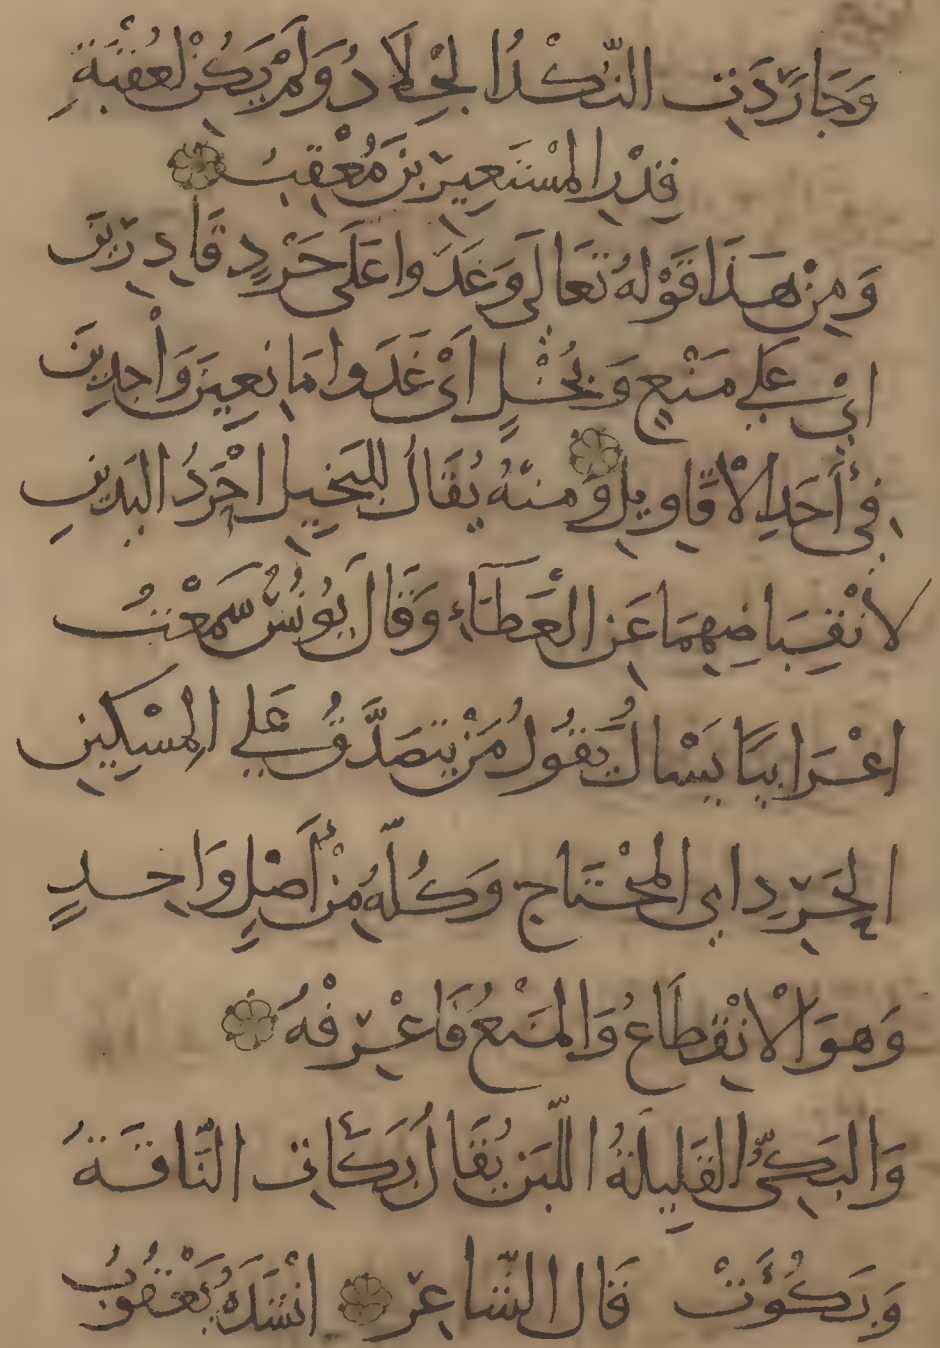 وَحَارَدَتِ النُّكْدُ الْجِلَادُ وَلَمْ يَكُنْ لِعُقْبَةِ
قِدْرِ الْمُسْتَعِيرِينَ مُعْقِبُ
وَمِنْ هَذَا قَوْلُهُ تَعَالَى وَغَدَوا عَلَى حَرْدٍ قَادِرِينَ
اىْ عَلَى مَنْعٍ وَبُخْلٍ أَىْ غَدَوا مَانِعِينَ وَاجِدِينَ
فِى أَحَدِ الْأَقَاوِيلِ وَمِنْهُ يُقَالُ لِلْبَخِيلِ احْرَدُ الْيَدَيْنِ
لانْقِبَاضِهِمَا عَنِ الْعَطَاءِ وَقَالَ يُونُسُ سَمِعْتُ
اعْرَابِيًّا يَسْالُ يَقُولُ مَنْ يَتَصَدَّقُ عَلَى الْمِسْكِينِ
الْحَرِدِ اى الْمُحْتَاجِ وَكُلُّهُ مِنْ أَصْلٍ وَاحِدٍ
وَهوَ الْانْقِطَاعُ وَالْمَنْعُ فَاعْرِفْهُ
وَالْبَكِىُّ الْقَلِيلَةُ اللَّبَنِ يُقَالُ بَكَأَتِ النَّاقَةُ
وَبَكُؤَتْ قَالَ الشَّاعِرُ انْشَدَهُ يَعْقُوبُ